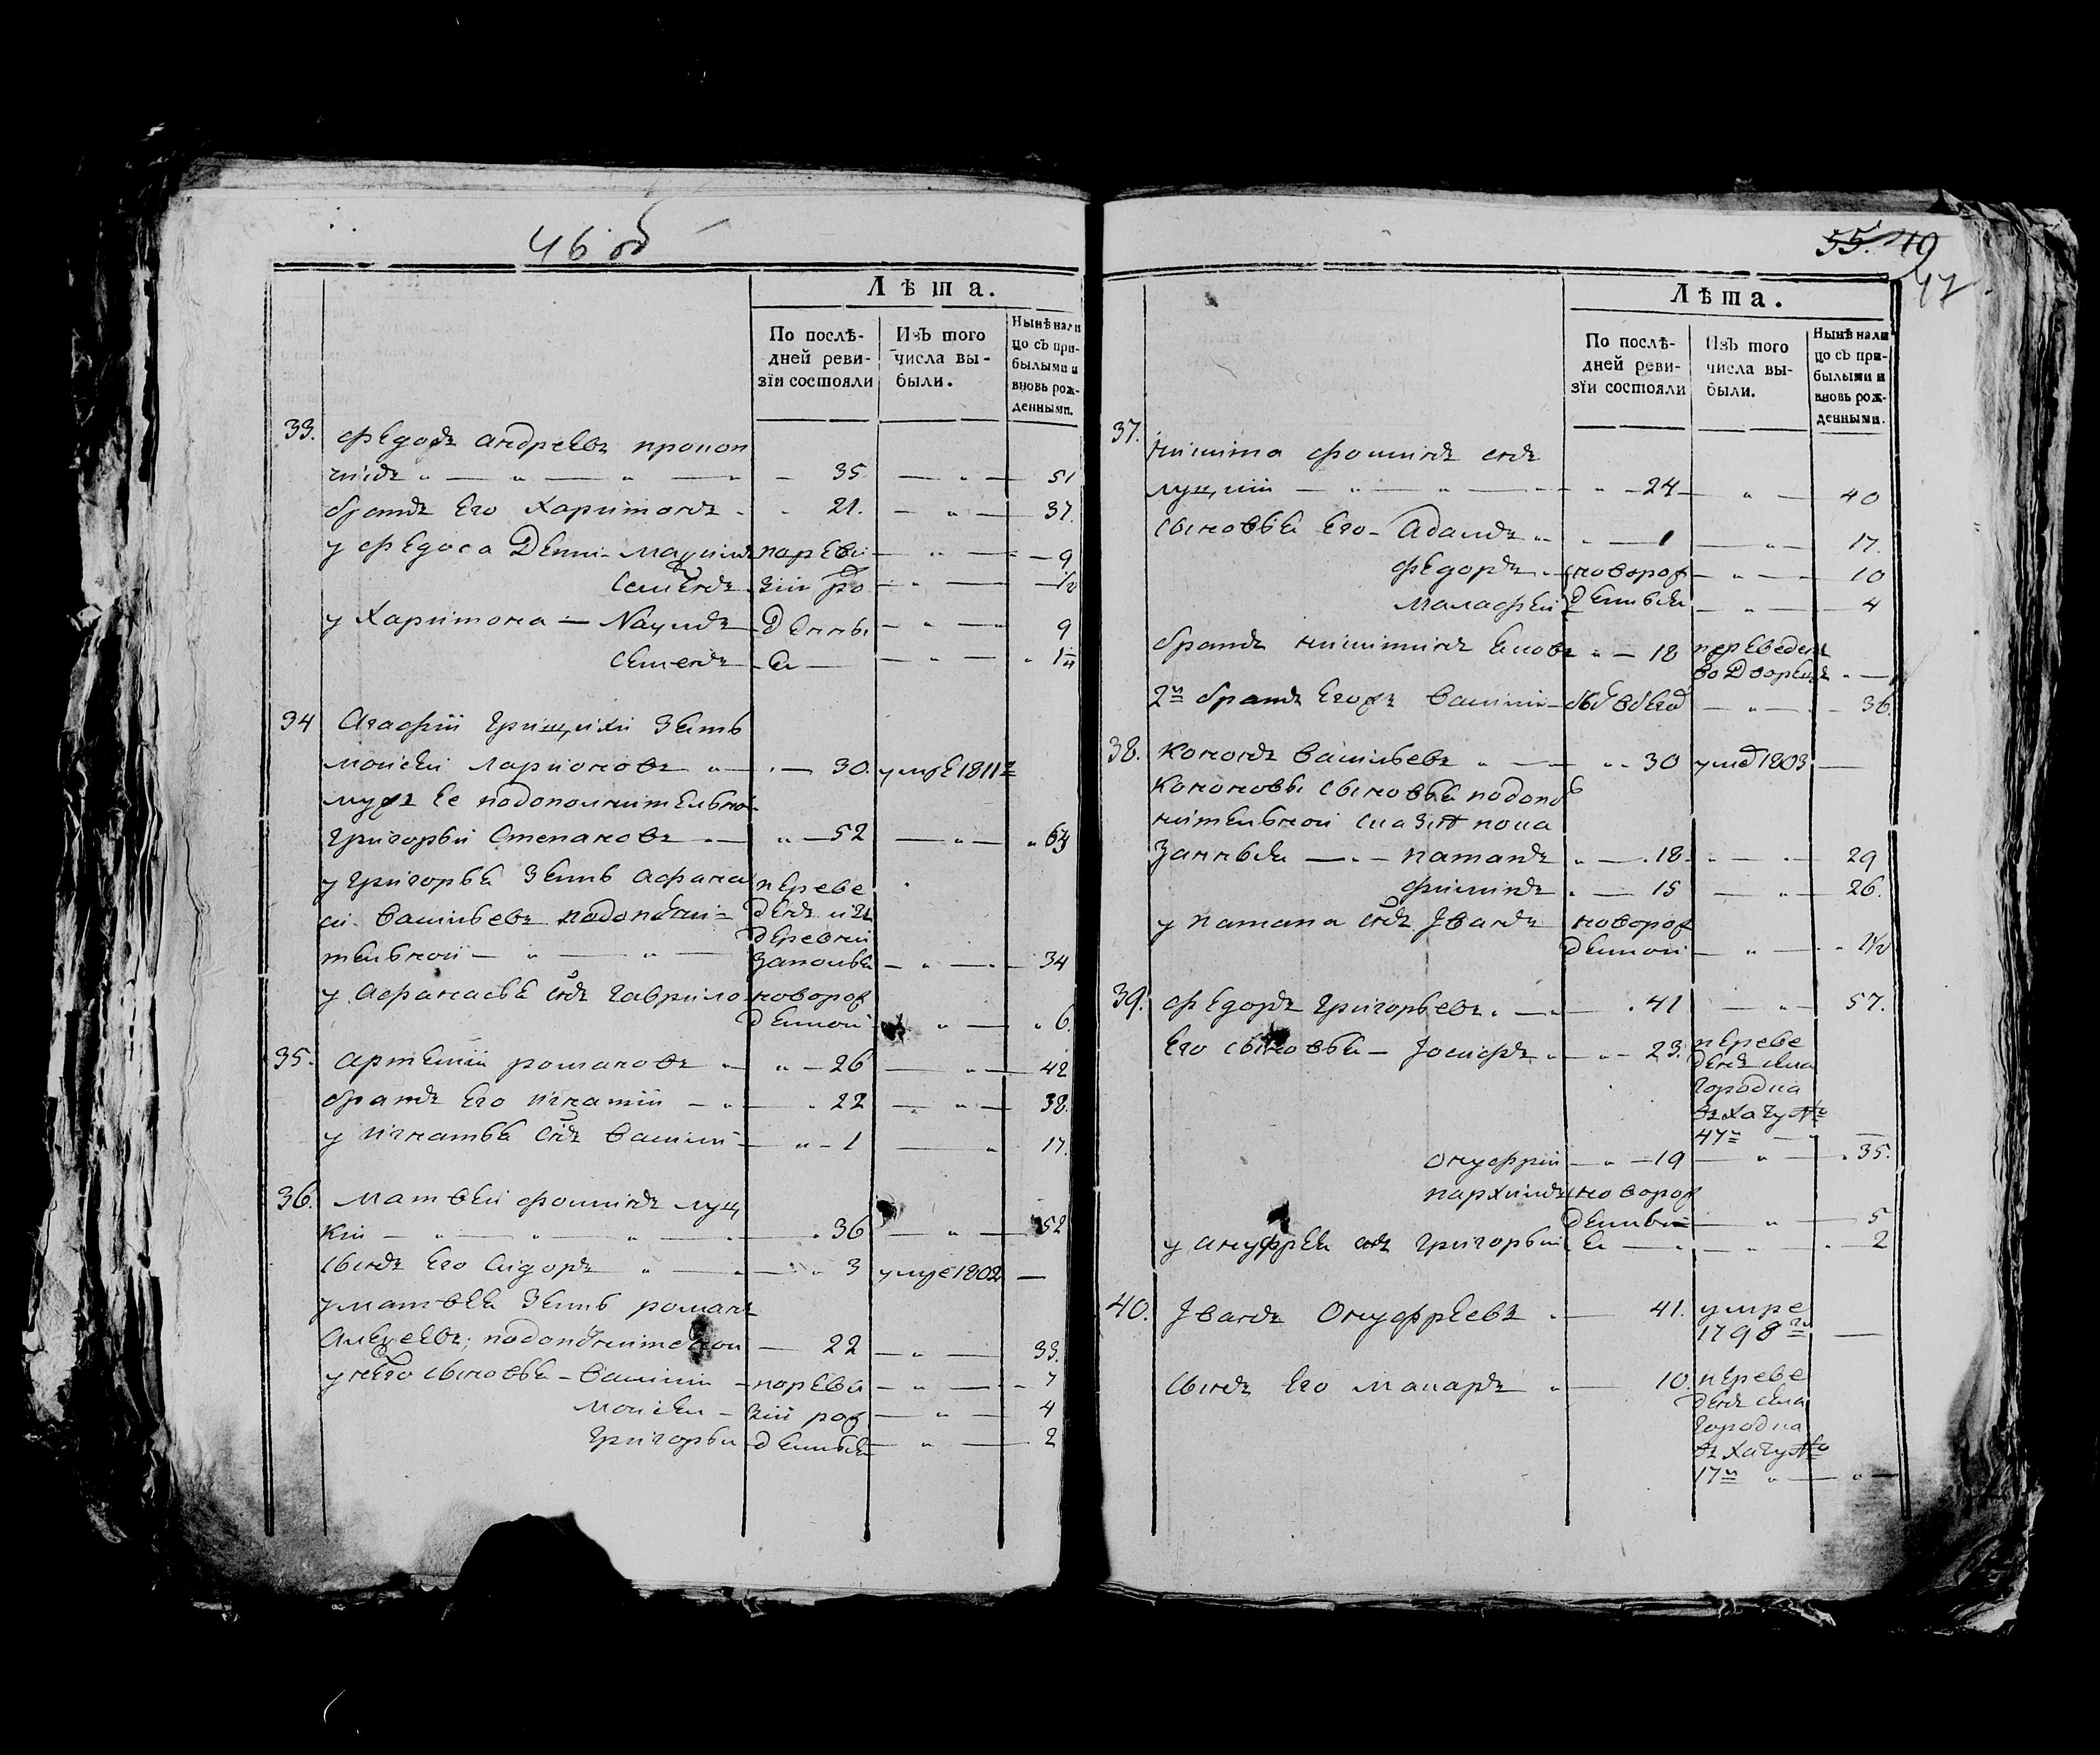 46 об
Лѣта.
По послѣ-
дней реви-
зіи состояли
Изъ того
числа вы-
были.
Нынѣ нали
цо съ при-
былыми и
вновь рож-
денными.
33. Федоръ Андреевъ прокоп
чикъ 35 51
братъ Его Харитонъ 21. 37.
у Федоса Дети Максимъ пореви 9
Семенъ зіи ро
у Харитона Наумъ денны 9
Семенъ е
34 Агафіи Грищихи Зять
Моисеи Ларионовъ 30. умре 1811г
мужъ Ее подополнительной
Григорьи Степановъ 52 63
у Григорья Зять Афана переве
си Васильевъ подополни денъ изъ
тельнои деревни
Запоља 34
у Афанасья сынъ Гаврило новорож
деннои 6.
35. Артемии романовъ 26 42
братъ Его игнатіи 22 38.
у игнатья сынъ Васили 1 17.
36. Матвеи фоминъ луц
кіи 36 52
сынъ Его Сидоръ 3 умре 1802
у матвея Зять романъ
Алексеевъ; подополнительнои 22 33.
у него сыновья Васили пореви 7
Моисеи зіи рож 4
Григорьи денныя 2
55. 49
47
Лѣта.
По послѣ-
дней реви-
зіи состояли
Изъ того
числа вы-
были.
Нынѣ нали
цо съ при-
былыми и
вновь рож-
денными.
37. никита фоминъ сынъ
луцкіи 24 40
сыновья Его Адамъ 1 17.
Федоръ новорож 10
Малафеи денныя 4
братъ никитинъ 18 переведенъ
во Дворецъ
2й братъ Егожъ Васили 36.
38. кононъ Васильевъ 30 умре 1803
кононовы сыновья подопол
нительнои сказки пока
занныя патапъ 18. 29
филипъ 15 26.
у патапа сынъ Иванъ новорож
деннои 1½
39. Федоръ Григорьевъ 41 57.
Его сыновья Иосифъ 23. переве
денъ села
Городка
въ хату №
47й
Онуфріи 19 35.
пархимъ новорож
денны 5
у ануфрея сынъ Григорьи е 2
40. Иванъ Онуфреевъ 41. умре
1798го
сынъ Его Макаръ 10. переве
денъ села
Городка
въ хату №
17й